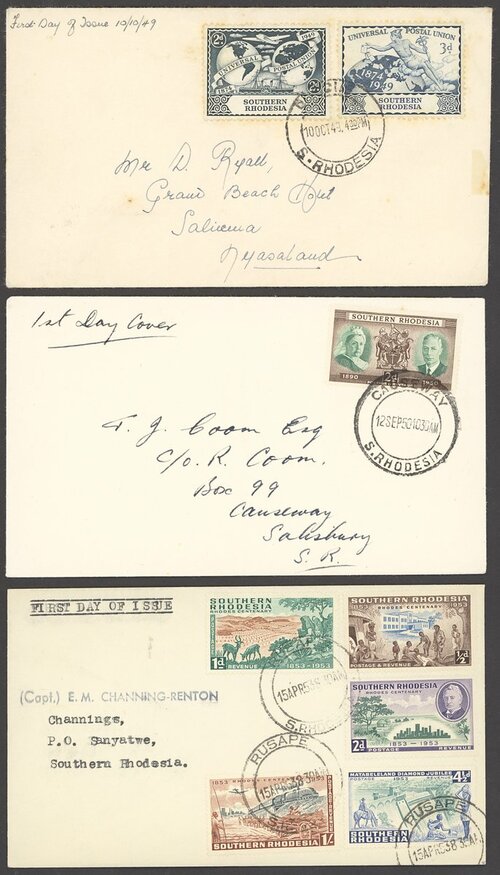 First Day of Issue 10/10/49
2d
1949
UNIVERSAL POSTAL UNION
1874
2d
SOUTHERN
RHODESIA
UNIVERSAL POSTAL UNION
3d
1874
1949
SOUTHERN
RHODESIA
10 OCT 49. 4 PM
S. RHODESIA
Mr D. Ryall,
Grand Beach
Salima
Nyasaland
1st Day Cover
SOUTHERN RHODESIA
1890
2d
1950
CAUSEWAY
12 SEP 50 10 30 AM
S. RHODESIA
T. J. Coom Esq
C/o. R. Coom.
Box 99
Causeway
Salisbury
S. R.
FIRST DAY OF ISSUE
SOUTHERN
RHODESIA
RHODES CENTENARY
1d
REVENUE
1853-1953
SOUTHERN RHODESIA
1853 RHODES CENTENARY 1953
POSTAGE & REVENUE
½d
15 APR 53 8 30 AM
S. RHO
(Capt.) E. M. CHANNING-RENTON
Channings,
P.O. Sanyatwe,
Southern Rhodesia.
SOUTHERN RHODESIA
RHODES CENTENARY
2d
1853 — 1953
POSTAGE
REVENUE
RUSAPE
15 APR 53 8 30 AM
1853 RHODES CENTENARY
SOUTHERN RHODESIA
1/-
MATABELELAND DIAMOND JUBILEE
POSTAGE
1953
REVENUE
4½d
SOUTHERN
RHODESIA
RUSAPE
15 APR 53 8 30 AM